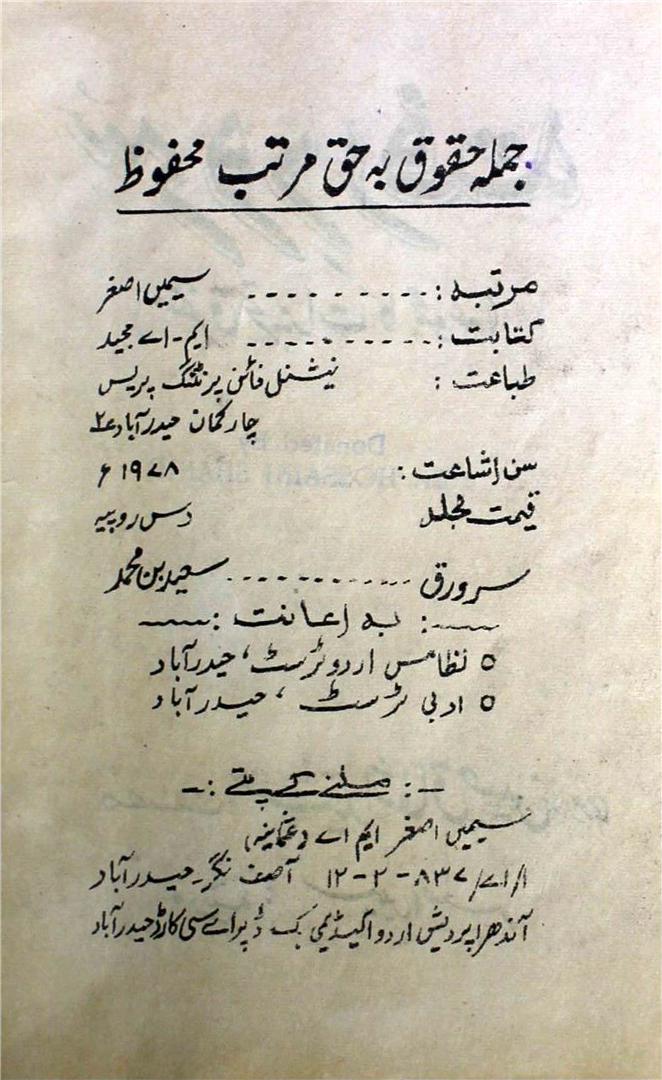 جملہ حقوق بہ حق مرتب محفوظ
مرتبہ : ---------- سیمیں اصغر
کتابت : ---------- ایم۔ اے مجید
طباعت : نیشنل فائن پرنٹنگ پریس
چار کمان حیدرآباد ۲
سن اشاعت : ۱۹۷۸ ء
قیمت مجلد دس روپیہ
سرورق ---------- سعید بن محمد
: بہ اعانت :
o نظامس اردو ٹرسٹ ، حیدرآباد
o ادبی ٹرسٹ ، حیدرآباد
-: ملنے کے پتے :-
سیمیں اصغر ایم اے (عثمانیہ)
۱۲-۲-۸۳۷/اے/۱ آصف نگر۔ حیدرآباد
آندھرا پردیش اردو اکیڈیمی بک ڈپو اے سی گارڈ حیدرآباد
Donated By